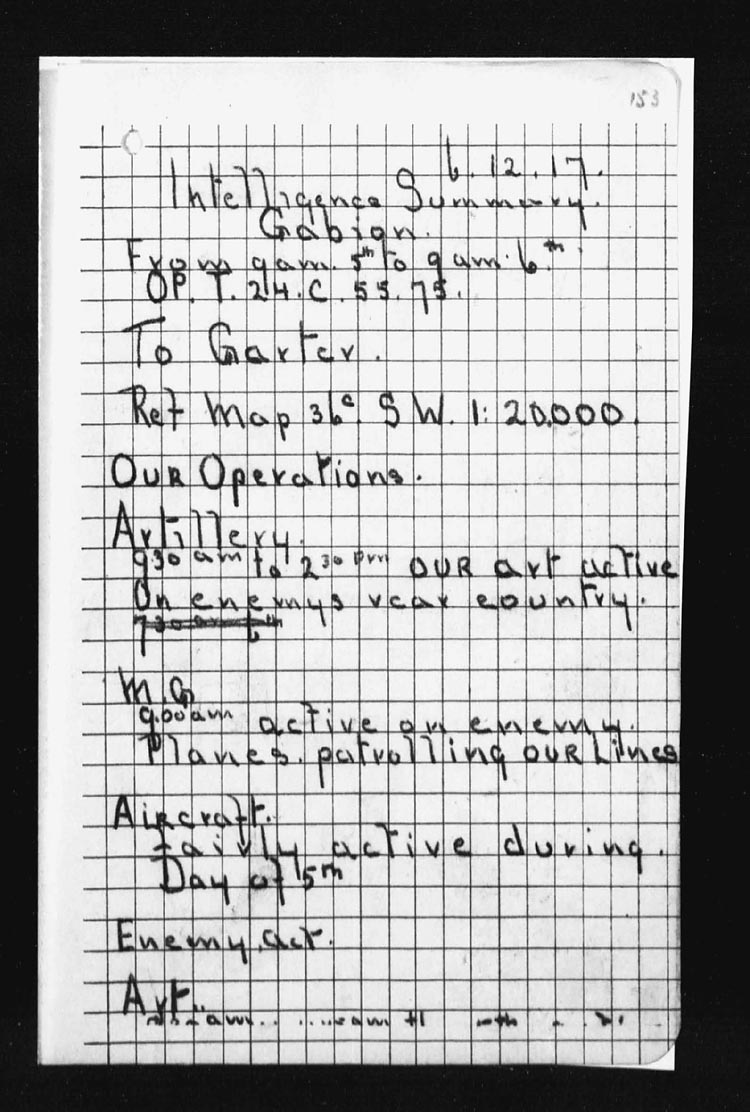 153
6.12.17.
Intelligence Summary.
Gabion.
From 9am. 5th to 9am. 6th.
OP. T. 24. C. 55. 75.
To Garter.
Ref Map 36c. S W. 1: 20.000.
OUR Operations.
Artillery.
930 am to 230 pm OUR art active
On enemys rear country.
M.G
9.00am active on enemy.
Planes. patrolling OUR Lines
Aircraft.
fairly active during.
Day of 5th
Enemy, act.
Art.